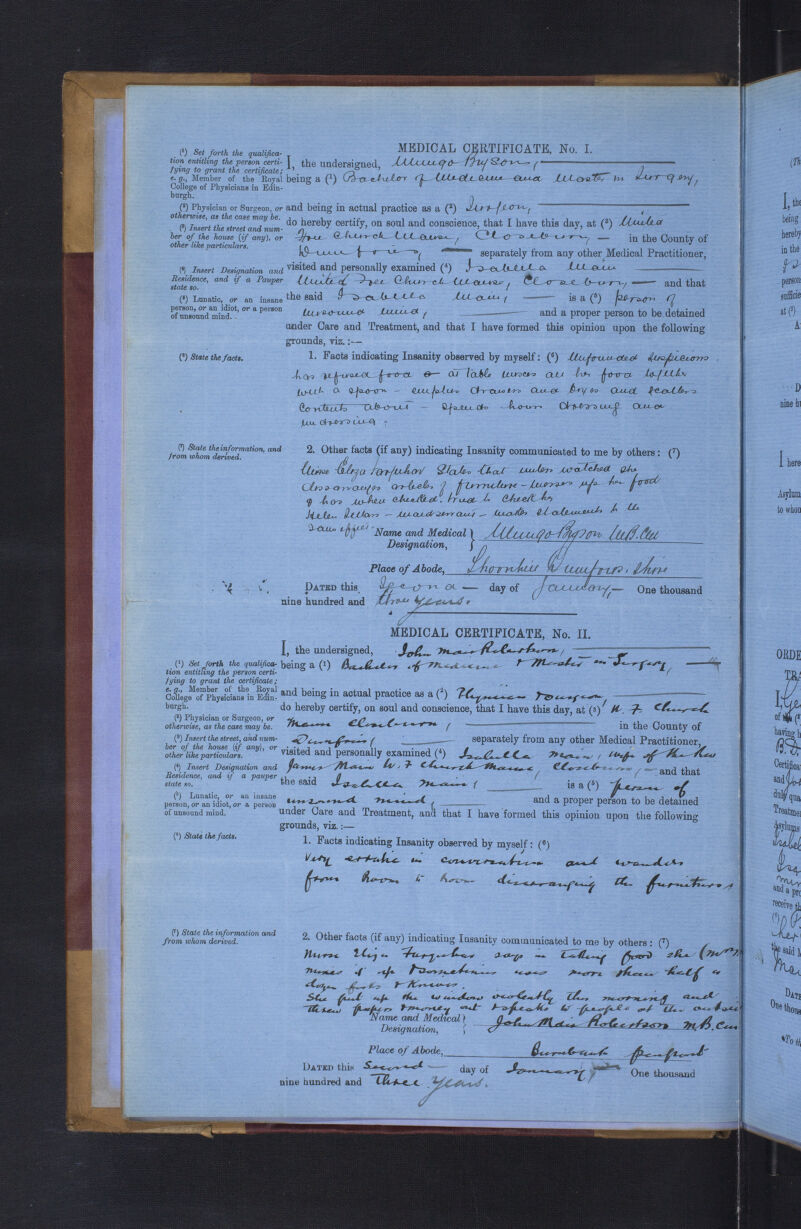 MEDICAL CERTIFICATE, No. I.
(¹) Set forth the qualifica-
tion entitling the person certi-
fying to grant the certificate;
e.g., Member of the Royal
College of Physicians in Edin-
burgh.
I, the undersigned, Mungo Bryson,
being a (¹) Bachelor of Medicine and Master in Surgery,
(²) Physician or Surgeon, or
otherwise, as the case may be.
and being in actual practice as a (²) Surgeon,
(³) Insert the street and num-
ber of the house (if any), or
other like particulars.
do hereby certify, on soul and conscience, that I have this day, at (³) United
Free Church Manse, Closeburn, in the County of
Dumfries separately from any other Medical Practitioner,
(⁴) Insert Designation and
Residence, and if a Pauper
state so.
visited and personally examined (⁴) Isabella Main
United Free Church Manse, Closeburn, and that
(⁵) Lunatic, or an insane
person, or an idiot, or a person
of unsound mind.
the said Isabella Main, is a (⁵) person of
unsound mind, and a proper person to be detained
under Care and Treatment, and that I have formed this opinion upon the following
grounds, viz.:—
(⁶) State the facts.
1. Facts indicating Insanity observed by myself: (⁶) Unfounded suspicions
has refused food or at table messes all her food together
with a spoon - empties drawers and boxes and scatters
contents about - spends hours dressing and
undressing.
(⁷) State the information, and
from whom derived.
2. Other facts (if any) indicating Insanity communicated to me by others: (⁷)
Nurse Eliza Farquhar States that unless watched she
disarranges articles of furniture - messes up her food
& has when checked, tried to
Helen - maidservant - makes statements to the
same effect
Name and Medical
Designation,
Mungo Bryson M.B. CM
Place of Abode, Thornhill Dumfries-shire
DATED this Second day of January, One thousand
nine hundred and three years.
MEDICAL CERTIFICATE, No. II.
I, the undersigned, John Mair Robertson,
(¹) Set forth the qualifica-
tion entitling the person certi-
fying to grant the certificate;
e.g., Member of the Royal
College of Physicians in Edin-
burgh.
being a (¹) Bachelor of Medicine & Master in Surgery,
and being in actual practice as a (²) Physician & Surgeon
(²) Physician or Surgeon, or
otherwise, as the case may be.
do hereby certify, on soul and conscience, that I have this day, at (³) U. F. Church
Manse Closeburn, in the County of
(³) Insert the street, and num-
ber of the house (if any), or
other like particulars.
Dumfries, separately from any other Medical Practitioner,
visited and personally examined (⁴) Isabella Main, wife of the Rev
(⁴) Insert Designation and
Residence, and if a pauper
state so.
James Main U. F Church Manse, Closeburn, and that
the said Isabella Main, is a (⁵) person of
(⁵) Lunatic, or an insane
person, or an idiot, or a person
of unsound mind.
unsound mind, and a proper person to be detained
under Care and Treatment, and that I have formed this opinion upon the following
grounds, viz.:—
(⁶) State the facts.
1. Facts indicating Insanity observed by myself: (⁶)
Very erratic in conversation and wanders
from Room to Room disarranging the furniture,
(⁷) State the information and
from whom derived.
2. Other facts (if any) indicating Insanity communicated to me by others: (⁷)
Nurse Eliza Farquhar says in taking food she (Mrs
mixes it up & sometimes uses more than half a
dozen forks & Knives.
She put up the window violently this morning and
threw papers & money out & speaks to people at the
Name and Medical
Designation,
John Mair Robertson M.B. CM
Place of Abode, Burnbank Penpont
DATED this Second day of January, One thousand
nine hundred and Three years.